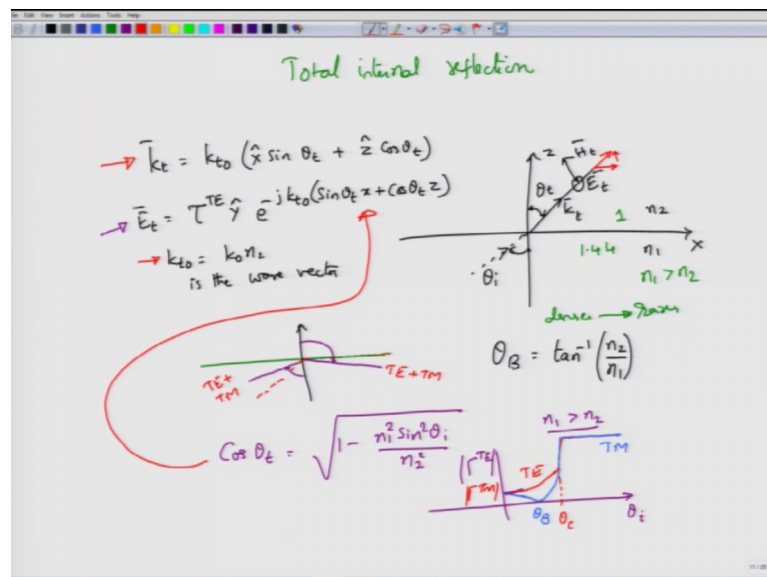 File Edit View Insert Actions Tools Help
Total internal reflection
k̄t = kt0 (x̂ sin θt + ẑ cos θt)
Ēt = τ^TE ŷ e^-jkt0(sin θt x + cos θt z)
kt0 = k0 n2
is the wave vector
z
H̄t
θt
Ēt
k̄t
1 n2
x
θi
1.44 n1
n1 > n2
denser → rarer
θB = tan⁻¹(n2/n1)
TE+
TM
TE+TM
Cos θt = √(1 - n1² sin² θi / n2²)
n1 > n2
|Γ^TE|
|Γ^TM|
TE
TM
θB θc θi